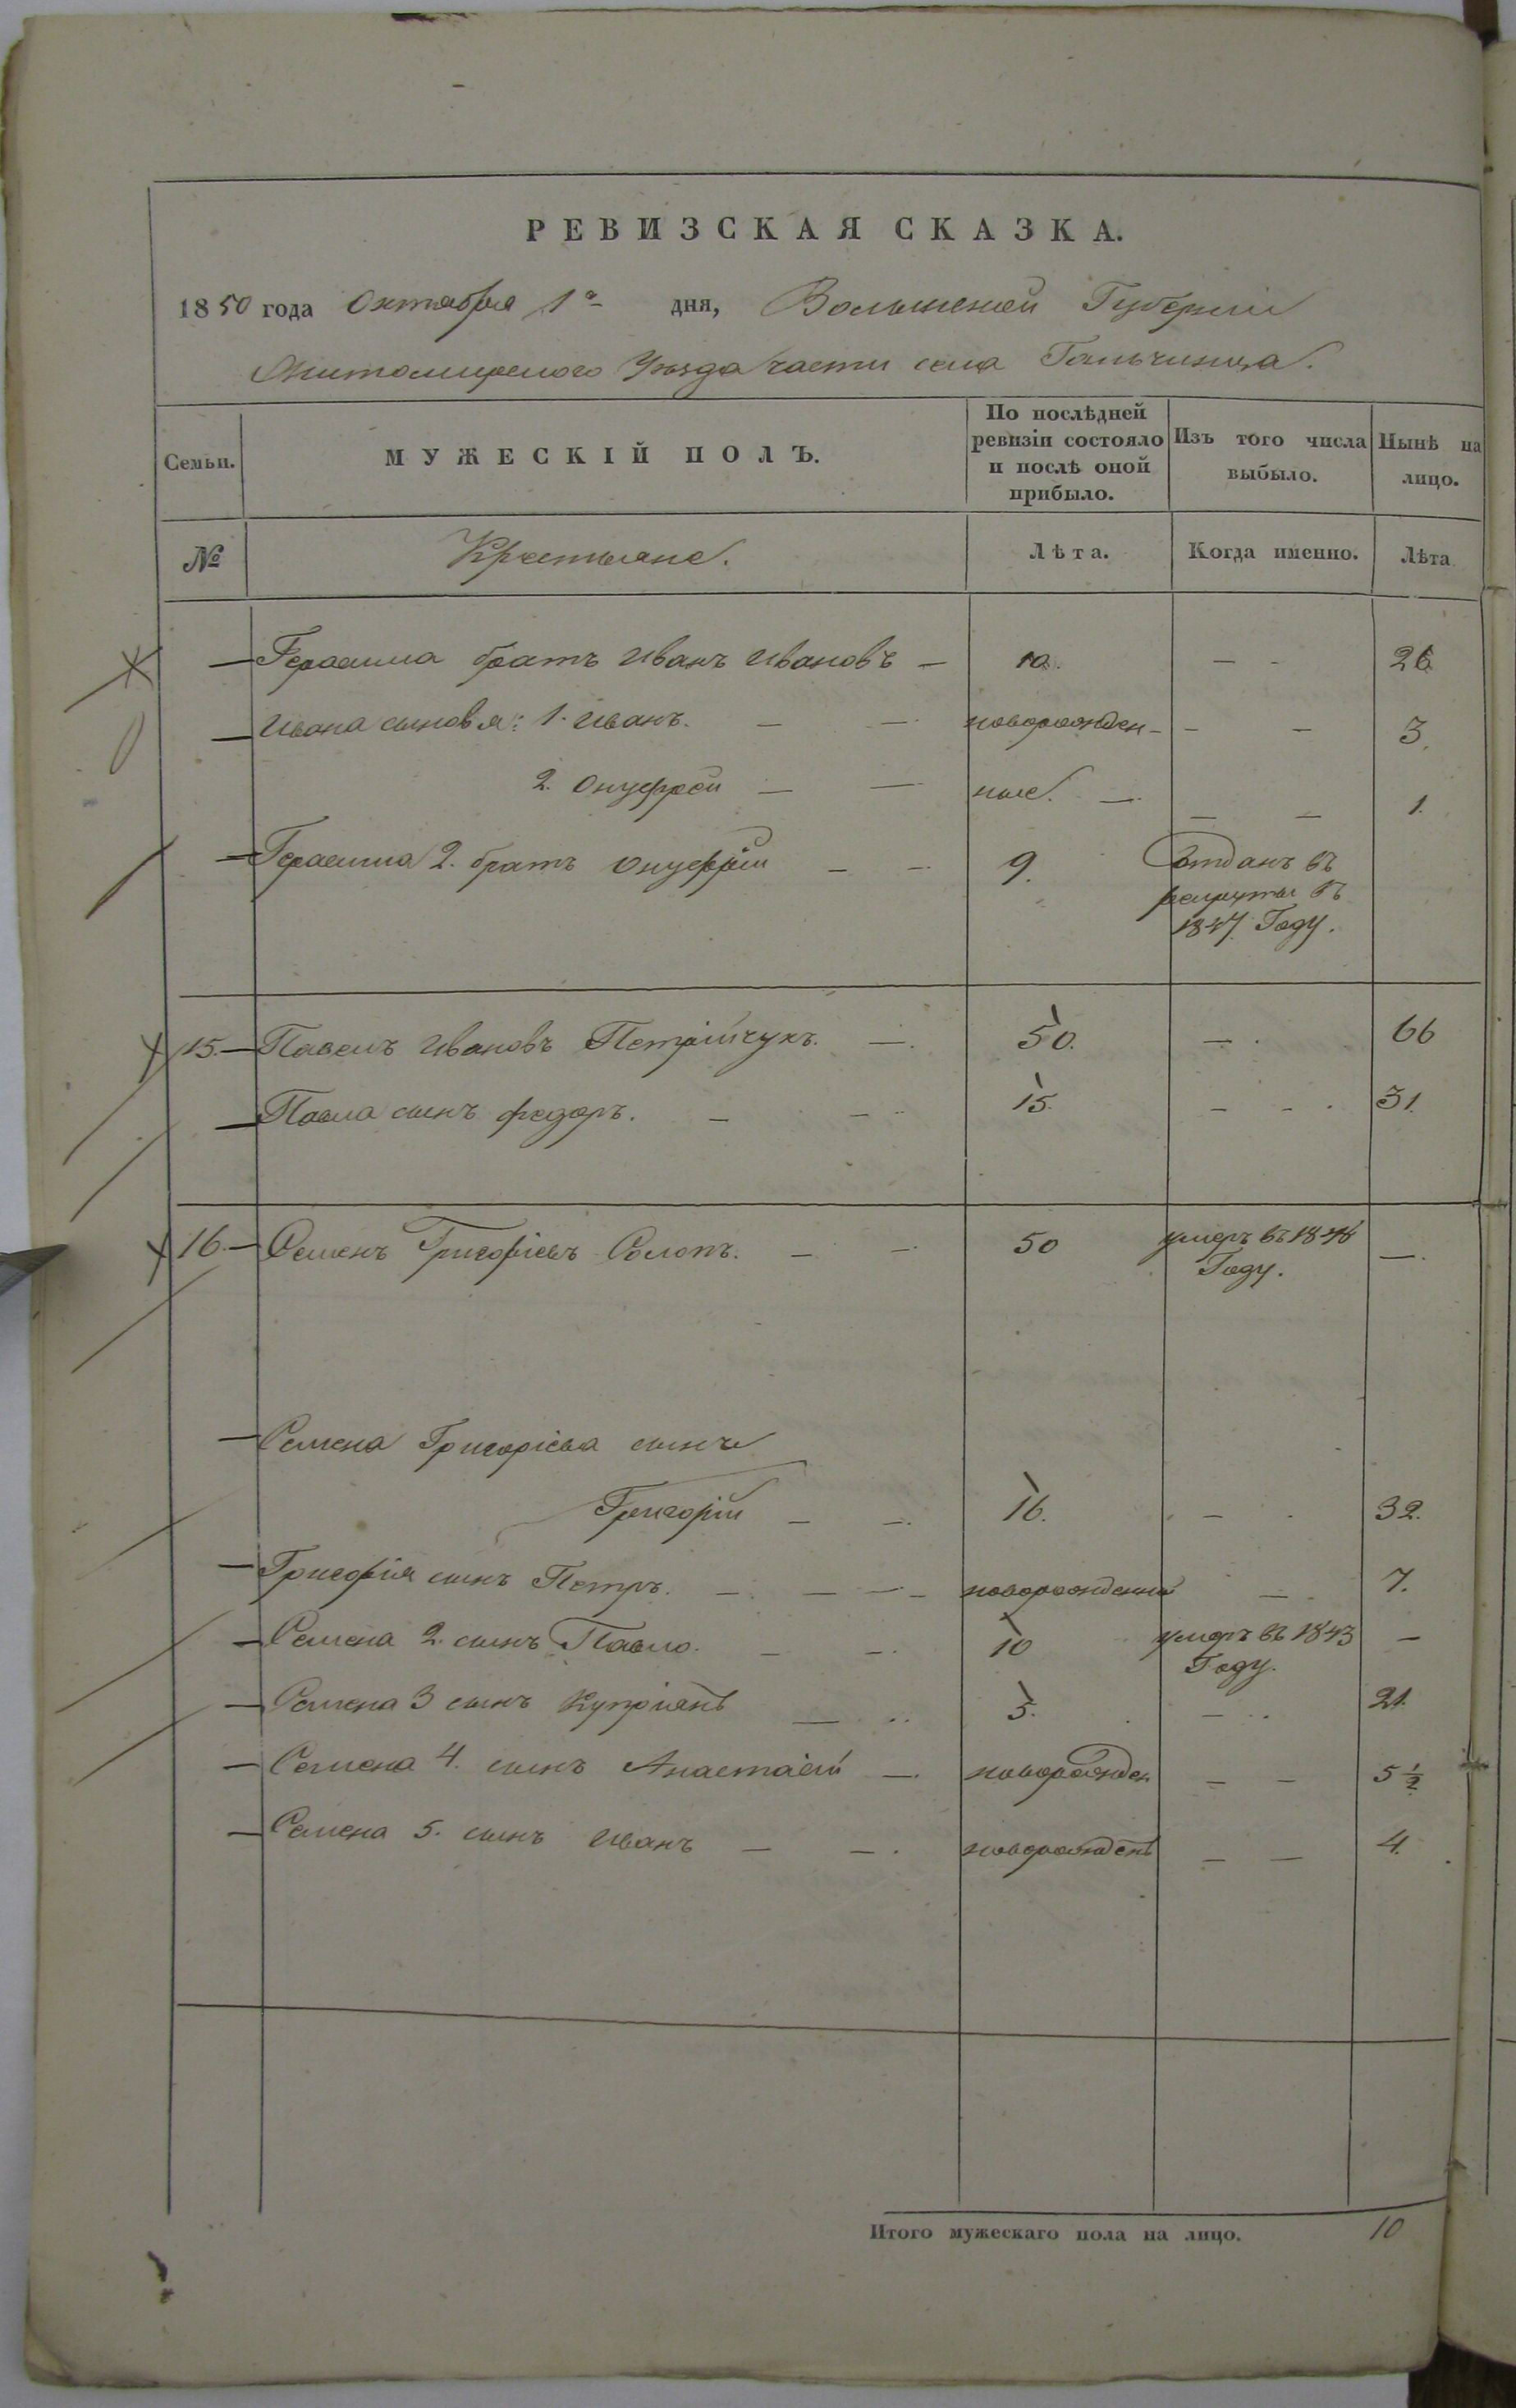 РЕВИЗСКАЯ СКАЗКА.
1850 года Октября 1го дня, Волынской Губерніи
Житомирского Уѣзда части села Гальчинца.
Семьи. МУЖЕСКІЙ ПОЛЪ. По послѣдней ревизіи состояло и послѣ оной прибыло. Изъ того числа выбыло. Нынѣ на лицо.
№ Крестьяне. Лѣта. Когда именно. Лѣта
Герасима братъ Иванъ Ивановъ — 10. — - 26
Ивана сыновя: 1. Иванъ. — — новорожден- - — 3.
2. Онуфрей — — ные. — — — 1.
Герасима 2. братъ Онуфрій — — 9. Отданъ въ
рекруты въ
1847. Году.
15. Павелъ Ивановъ Петрійчукъ. —. 50. — . 66
Павла сынъ Федоръ. — — 15. — - . 31.
16. Семенъ Григоріевъ Солопъ. — — 50 умеръ въ 1848 —.
Году.
Семена Григоріева сынъ
Григорій — —. 16. — . 32.
Григорія сынъ Петръ. — — — новорожденны — 7.
Семена 2. сынъ Павло. — — 10 умеръ въ 1843 —
Году.
Семена 3 сынъ Купріянъ — .. 5. — .. 21.
Семена 4. сынъ Анастасій —. новорожден. — — 5 ½
Семена 5. сынъ Иванъ — — . новорожденъ — — 4.
Итого мужескаго пола на лицо. 10